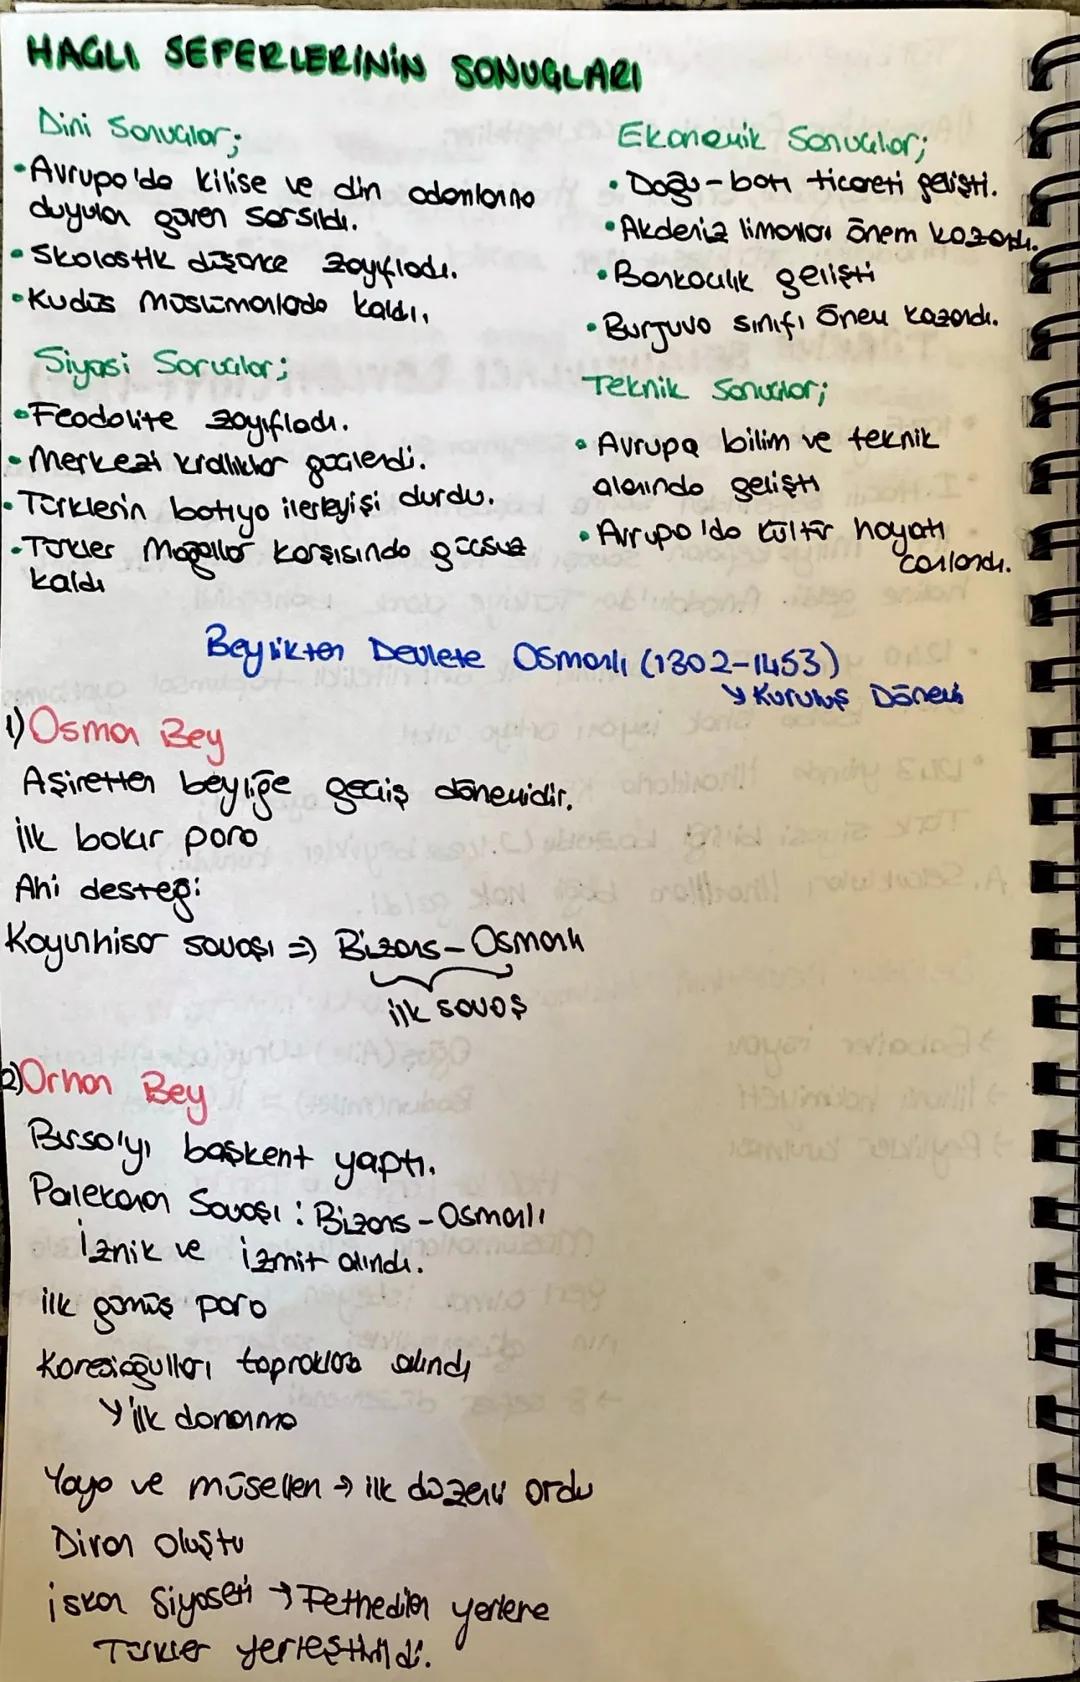 HAÇLI SEFERLERİNİN SONUÇLARI
Dini Sonuçlar;
• Avrupa'da kilise ve din adamlarına
duyulan güven sarsıldı.
• Skolastik düşünce zayıfladı.
• Kudüs Müslümanlarda kaldı.
Siyasi Sonuçlar;
• Feodalite zayıfladı.
• Merkezi krallıklar güçlendi.
• Türklerin batıya ilerleyişi durdu.
• Türkler Moğollar karşısında güçsüz
kaldı
Ekonomik Sonuçlar;
• Doğu-batı ticareti gelişti.
• Akdeniz limanları önem kazandı.
• Bankacılık gelişti
• Burjuva sınıfı önem kazandı.
Teknik Sonuçlar;
• Avrupa bilim ve teknik
alanında gelişti
• Avrupa'da kültür hayatı
canlandı.
Beylikten Devlete Osmanlı (1302-1453)
↳ Kuruluş Dönemi
1) Osman Bey
Aşiretten beyliğe geçiş dönemidir.
İlk bakır para
Ahi desteği
Koyunhisar savaşı => Bizans-Osmanlı
ilk savaş
2) Orhan Bey
Bursa'yı başkent yaptı.
Palekanon Savaşı : Bizans-Osmanlı
İznik ve İzmit alındı.
ilk gümüş para
Karesioğulları toprakları alındı
↳ ilk donanma
Yaya ve müsellem → ilk düzenli ordu
Divan oluştu
iskan Siyaseti → Fethedilen yerlere
Türkler yerleştirildi.